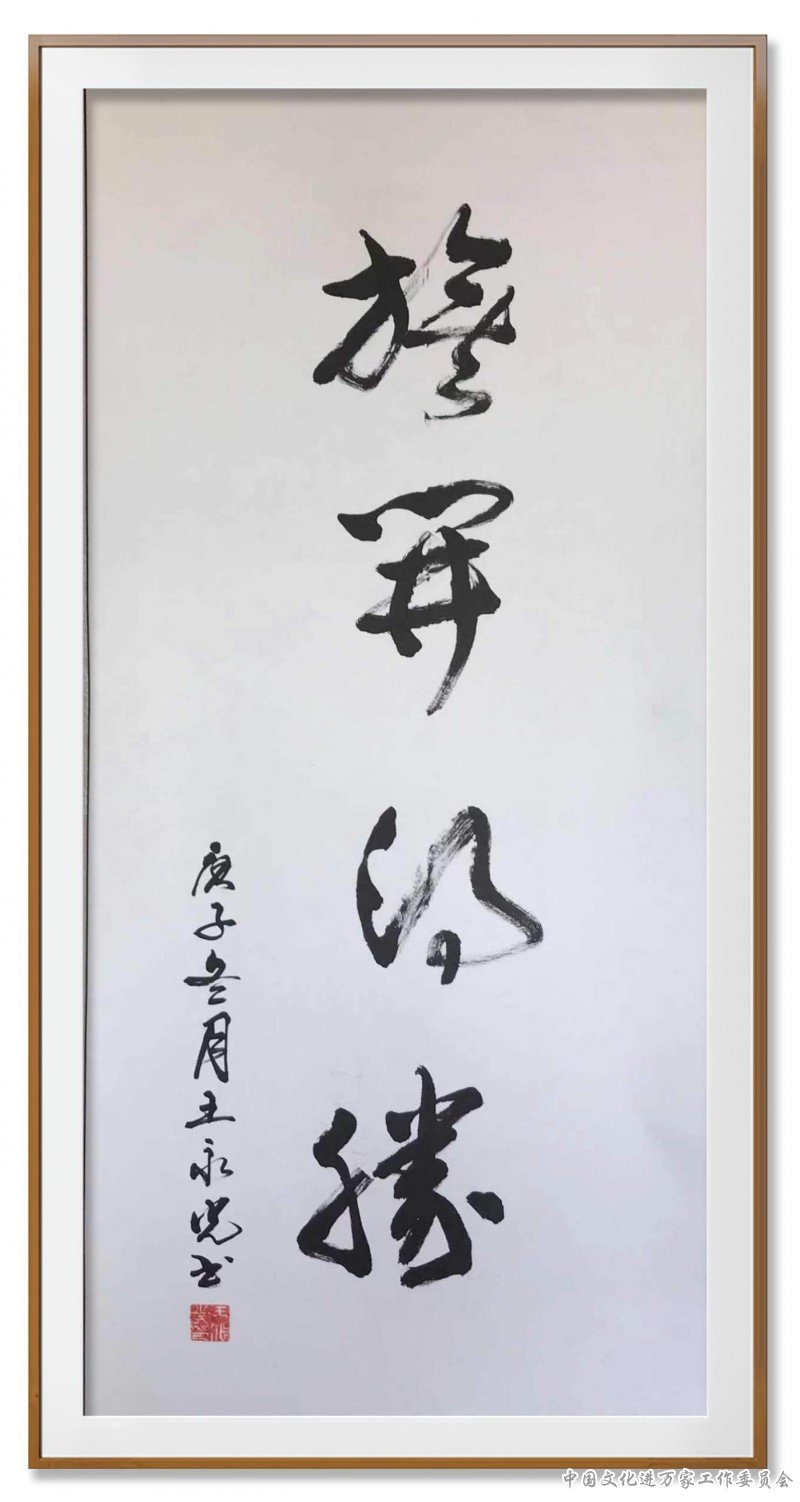 旗開得勝
庚子冬月王永光书
中国文化进万家工作委员会